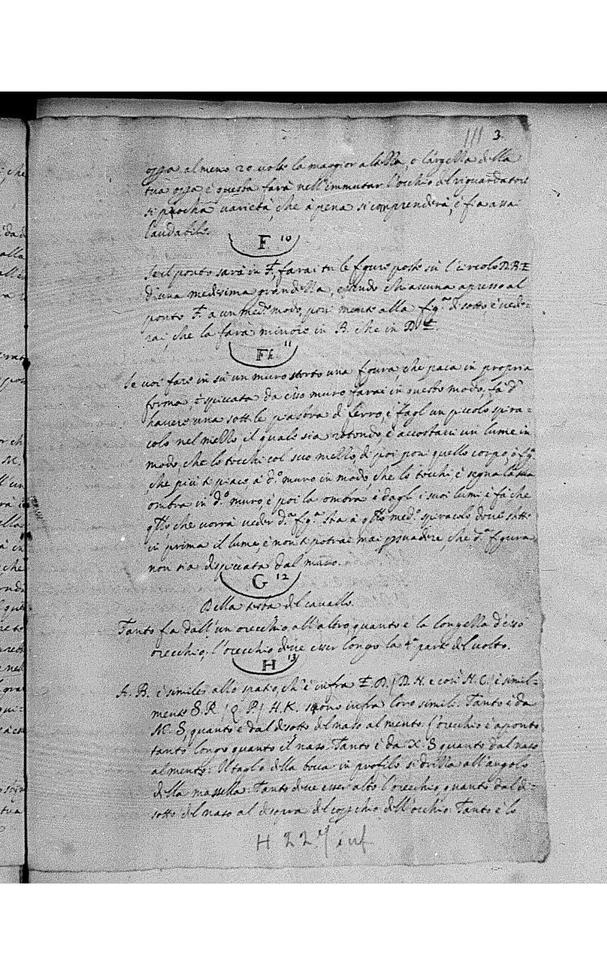 3
cosa almeno 20 volte la maggior altezza, e largezza della
tua cosa e questa farà nell'immutar l'occhio del riguardatore
si pocha varietà che à pena si comprenderà, è fia assai
laudabile.
F 10
Se il ponto sarà in F, farai tu le figure poste su l'circolo D.B.E
d'una medesima grandezza, essendo chiascuna apresso al
ponto F. a un med.º modo, pon mente alla fig.ª di sotto è vede-
rai, che la farà minore in B. che in D. E.
11
Se voi fare in su un muro storto una figura che paia in propria
forma, è spiccata da esso muro farai in questo modo, fa d'
havere una sottile piastra di ferro, è fagl' un picolo spira-
colo nel mezzo, il quale sia rotondo, è accostavi un lume in
modo, che lo tocchi col suo mezzo, di poi pon quello corpo, ò fig.ª
che più ti piace à d.º muro in modo che lo tochi è segna la sua
ombra in d.º muro è poi la ombra è dagli i suoi lumi è fà che
q̃llo che vorrà veder d.ª fig.ª stia à q̃llo med.º spiracolo dove stette
in prima il lume è non ti potrai mai psuadere, che d.ª figura
non sia dispiccata dal muro.
G 12
Della testa del cavallo.
Tanto fia dall'un orecchio all'altro, quanto è la longezza d'esso
orecchio, l'orecchio deve esser longo la 4.ª parte del volto.
H 13
A. B. è simile allo spatio, ch'è infra E. D. / D. H. e così H. C. è simil-
mente S. R. / Q. P. / H. K. sono infra loro simili. Tanto è da
N. S, quanto è dal disotto del naso al mento. l'orecchio è aponto
tanto longo quanto il naso. Tanto è da X. S quanto dal naso
al mento. Il taglo della boca in profilo si drizza all'angolo
della massella. Tanto deve esser alto l'orecchio, quanto dal di-
sotto del naso al disopra del coperchio dell'occhio. Tanto è lo
H 227 inf